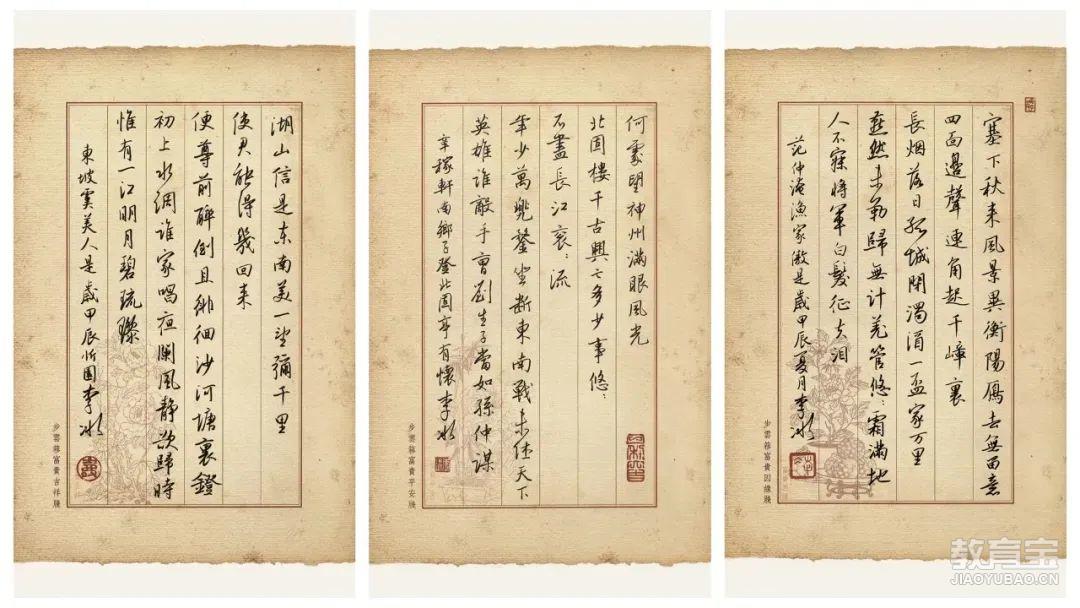 湖山信是东南美一望彌千里
使君能得幾回来
便尊前醉倒且徘徊沙河塘裏鐙
初上水調誰家唱夜闌風静欲歸時
惟有一江明月碧琉璃
東坡虞美人是歲甲辰忻園李冰
步雲箋富貴吉祥牋
何處望神州滿眼風光
北固樓千古興亡多少事悠〻
不盡長江衮〻流
年少萬兜鍪坐断東南戰未休天下
英雄誰敵手曹劉生子當如孫仲謀
辛稼軒南鄉子登北固亭有懷李冰
步雲箋富貴平安牋
塞下秋来風景異衡陽雁去無留意
四面邊聲連角起千嶂裏
長烟落日孤城閉濁酒一盃家万里
燕然未勒歸無計羌管悠〻霜滿地
人不寐將軍白髮征夫泪
范仲淹漁家傲是歲甲辰夏月李冰
步雲箋富貴因緣牋
教育宝
JIAOYUBAO.CN